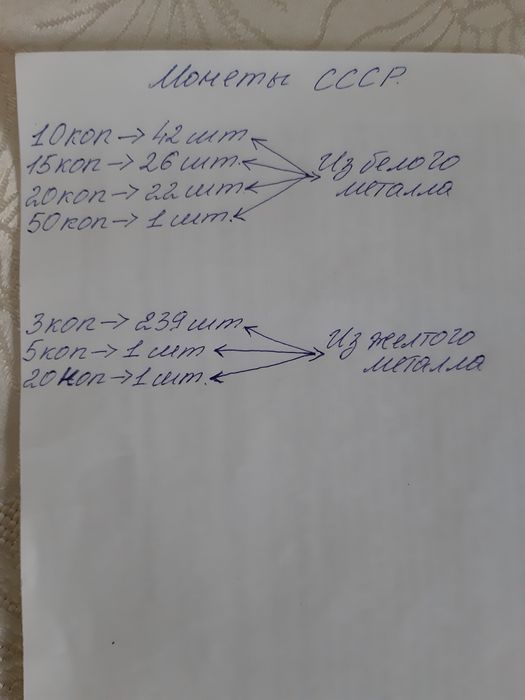 Монеты СССР.
10коп → 42 шт.
15коп → 26 шт.
20коп → 22 шт.
50коп → 1 шт.
Из белого
металла
3коп → 239 шт.
5коп → 1 шт
20коп → 1 шт.
Из желтого
металла